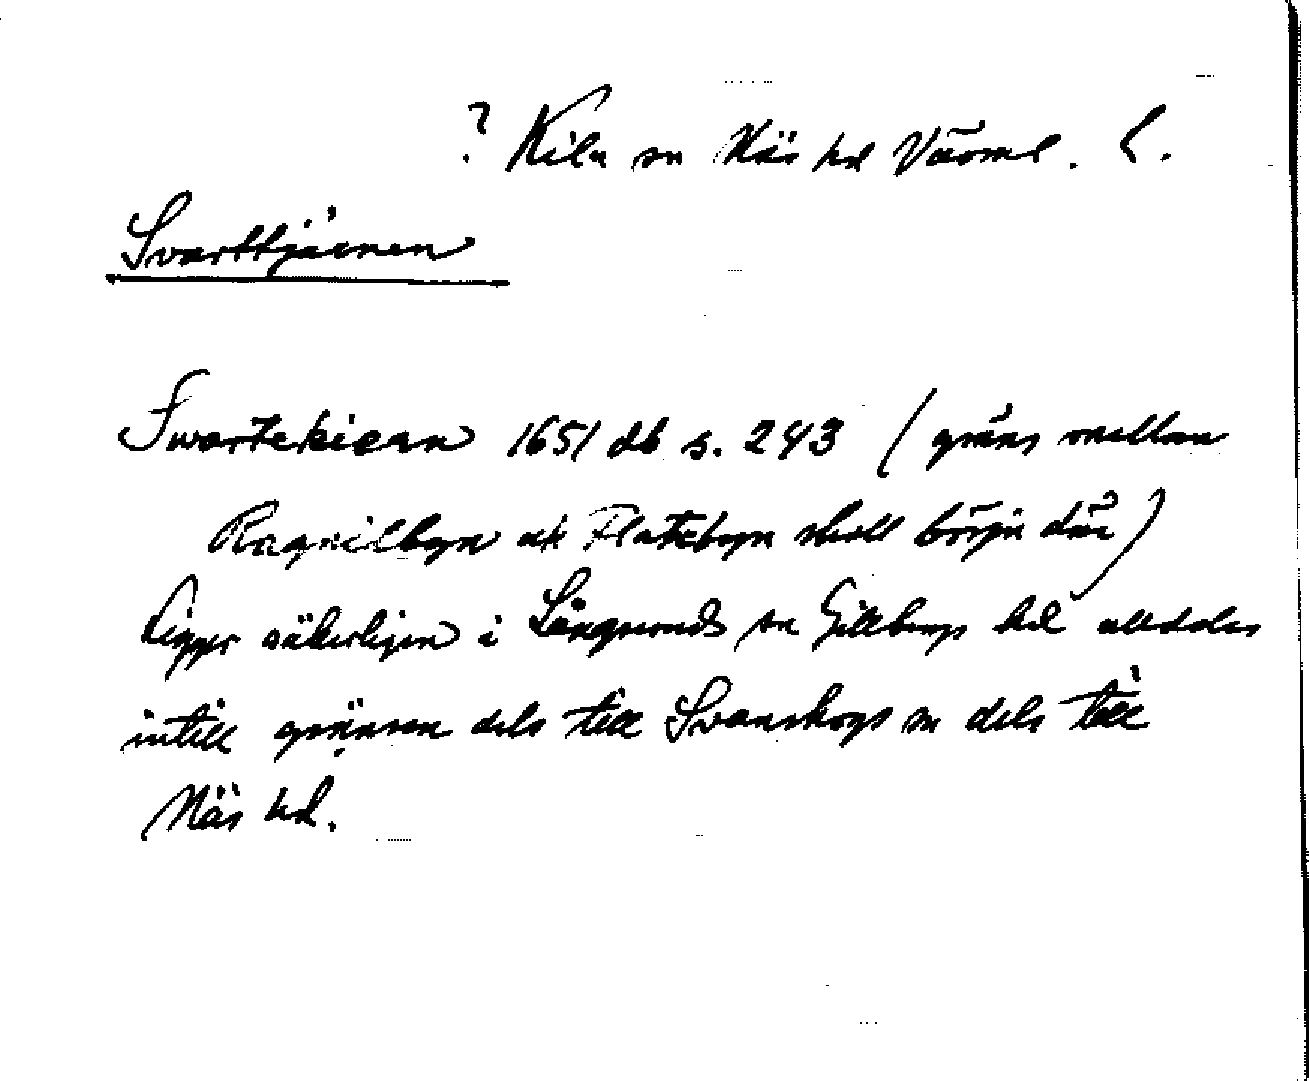 ? Kila sn Näs hd Värml. L.
Svarttjärnen
Swartekiern 1651 db s. 243 (gräns mellan
Ragnilbyn och Flatebyn skall börja där)
Ligger säkerligen i Långseruds sn Gillbergs hd alldeles
intill gränsen dels till Svanskogs sn dels till
Näs hd.